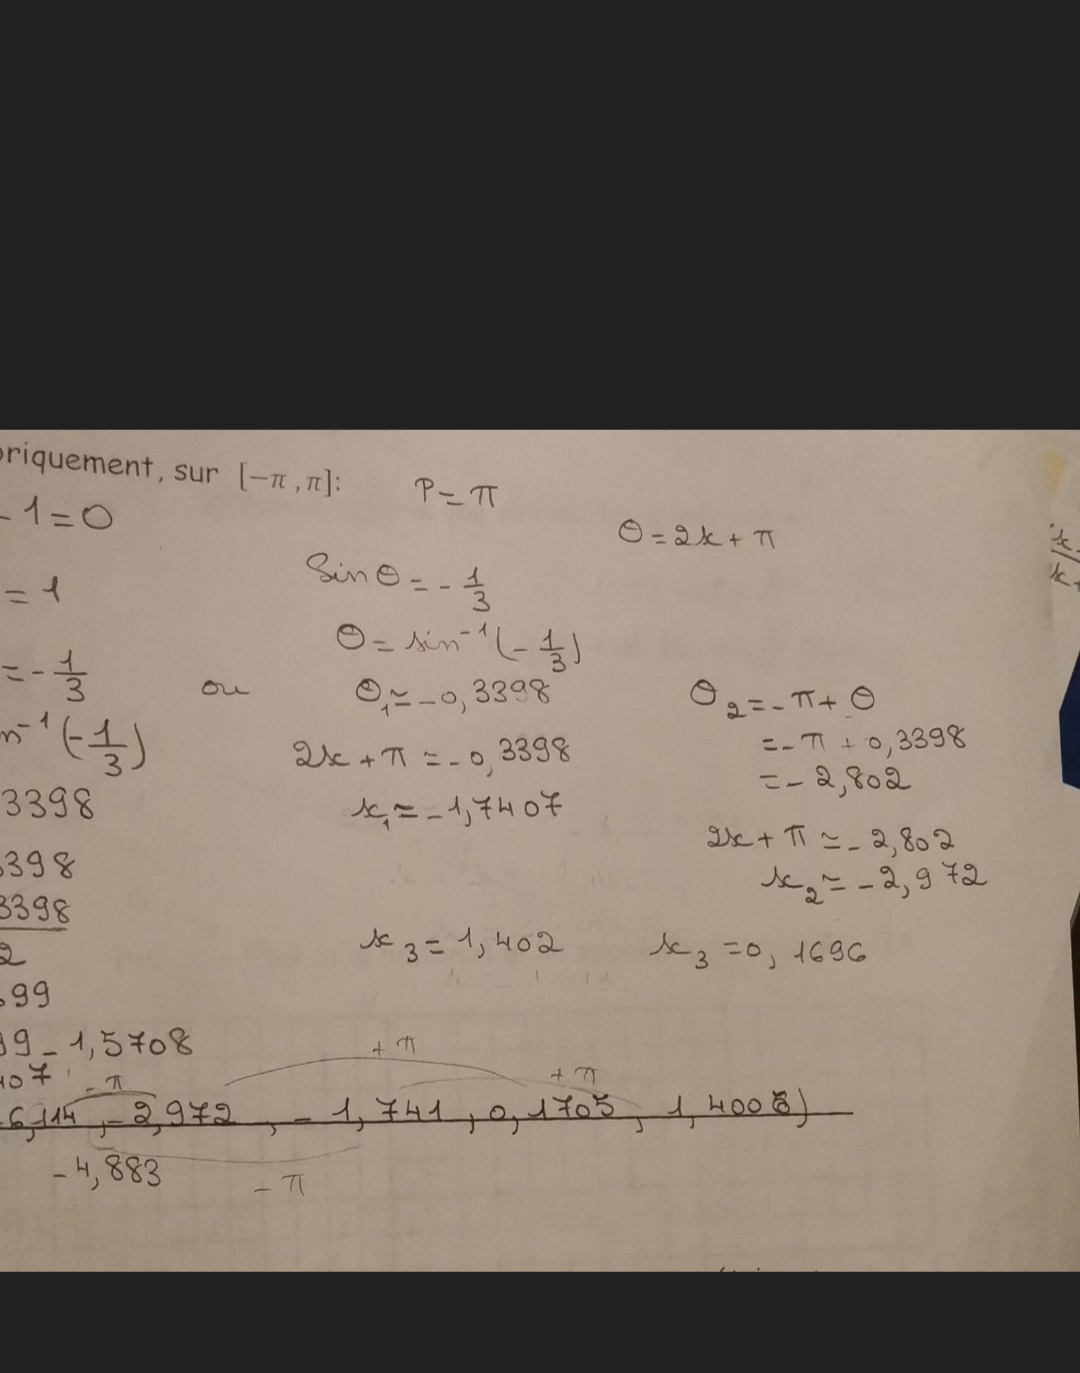 riquement, sur [-π, π]: P = π
- 1 = 0
θ = 2x + π
Sin θ = - 1/3
= 1
θ = sin⁻¹(- 1/3)
= - 1/3 ou θ₁ ≃ - 0,3398 θ₂ = - π + θ
n⁻¹(- 1/3) 2x + π = - 0,3398 = - π + 0,3398
= - 2,802
3398 x₁ ≃ - 1,7407
2x + π ≃ - 2,802
398 x₂ ≃ - 2,972
3398
2 x₃ = 1,402 x₃ = 0,1696
99
99 - 1,5708 + π
407 - π + π
6,114, - 2,972, - 1,741, 0,1705, 1,4008)
- 4,883 - π